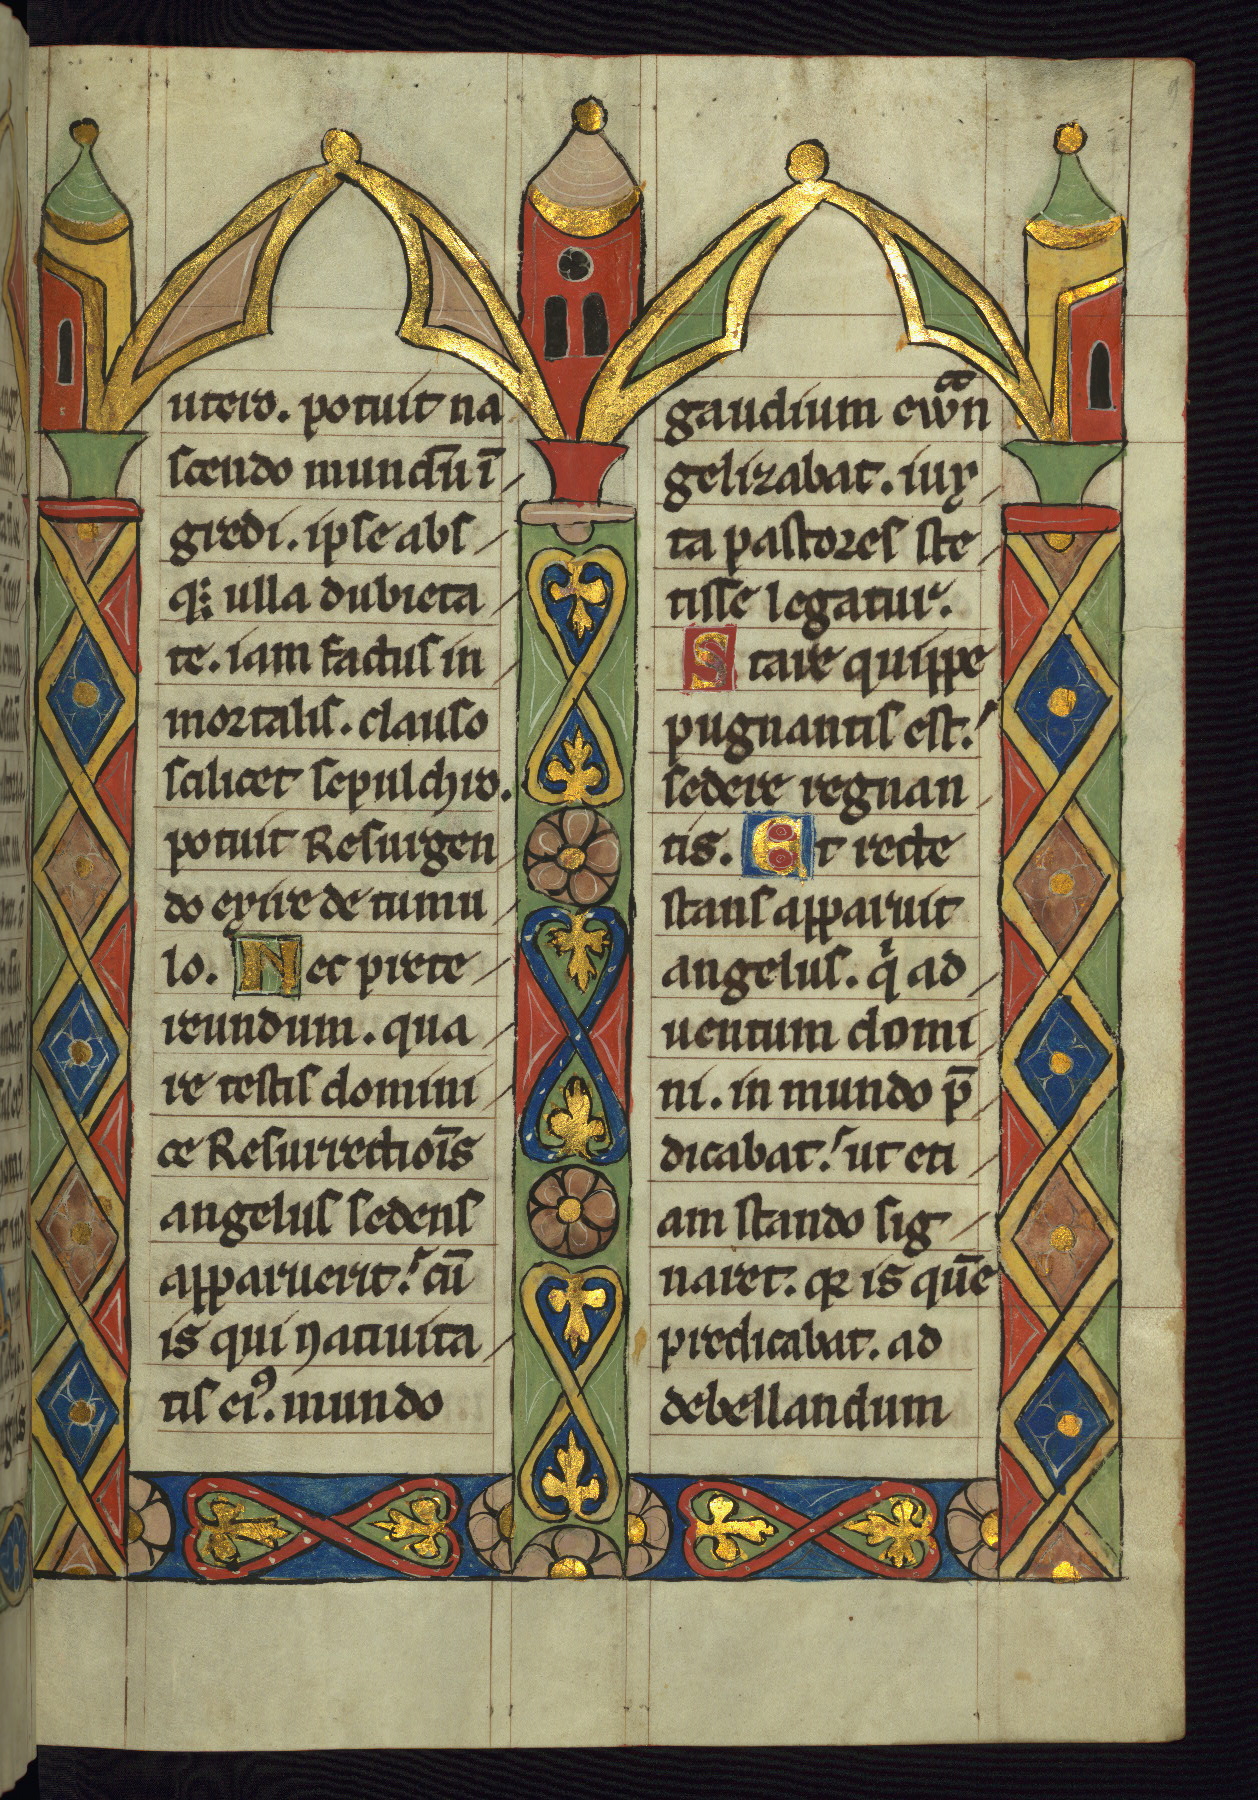 utero. potuit na
scendo mundū ī
gredi. ipse abs
q; ulla dubieta
te. iam factus in
mortalis. clauso
scilicet sepulchro.
potuit Resurgen
do exire de tumu
lo. Nec prete
reundum. qua
re testis domini
ce Resurrectioīs
angelus sedens
apparuerit. cū
is qui natiuita
tis eiꝰ. mundo
gaudium
gelizabat. iux
ta pastores ste
tisse legatur.
Stare quippe
pugnantis est.
sedere regnan
tis. Et recte
stans apparuit
angelus. qͥ ad
uentum domi
ni. in mundo p̄
dicabat. ut eti
am stando sig
naret. qꝛ is quē
predicabat. ad
debellandum